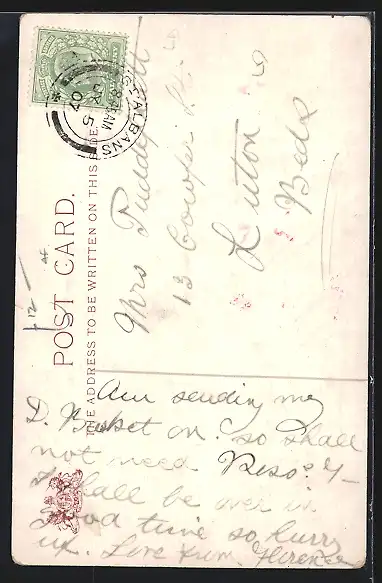 POST CARD.
THE ADDRESS TO BE WRITTEN ON THIS SIDE.
ST ALBANS
AM
5
07
Mrs
13 Cowper St
Luton
Beds
Am sending my
D. Basket on so shall
not need
I shall be over in
good time so hurry
up. Love from Florence